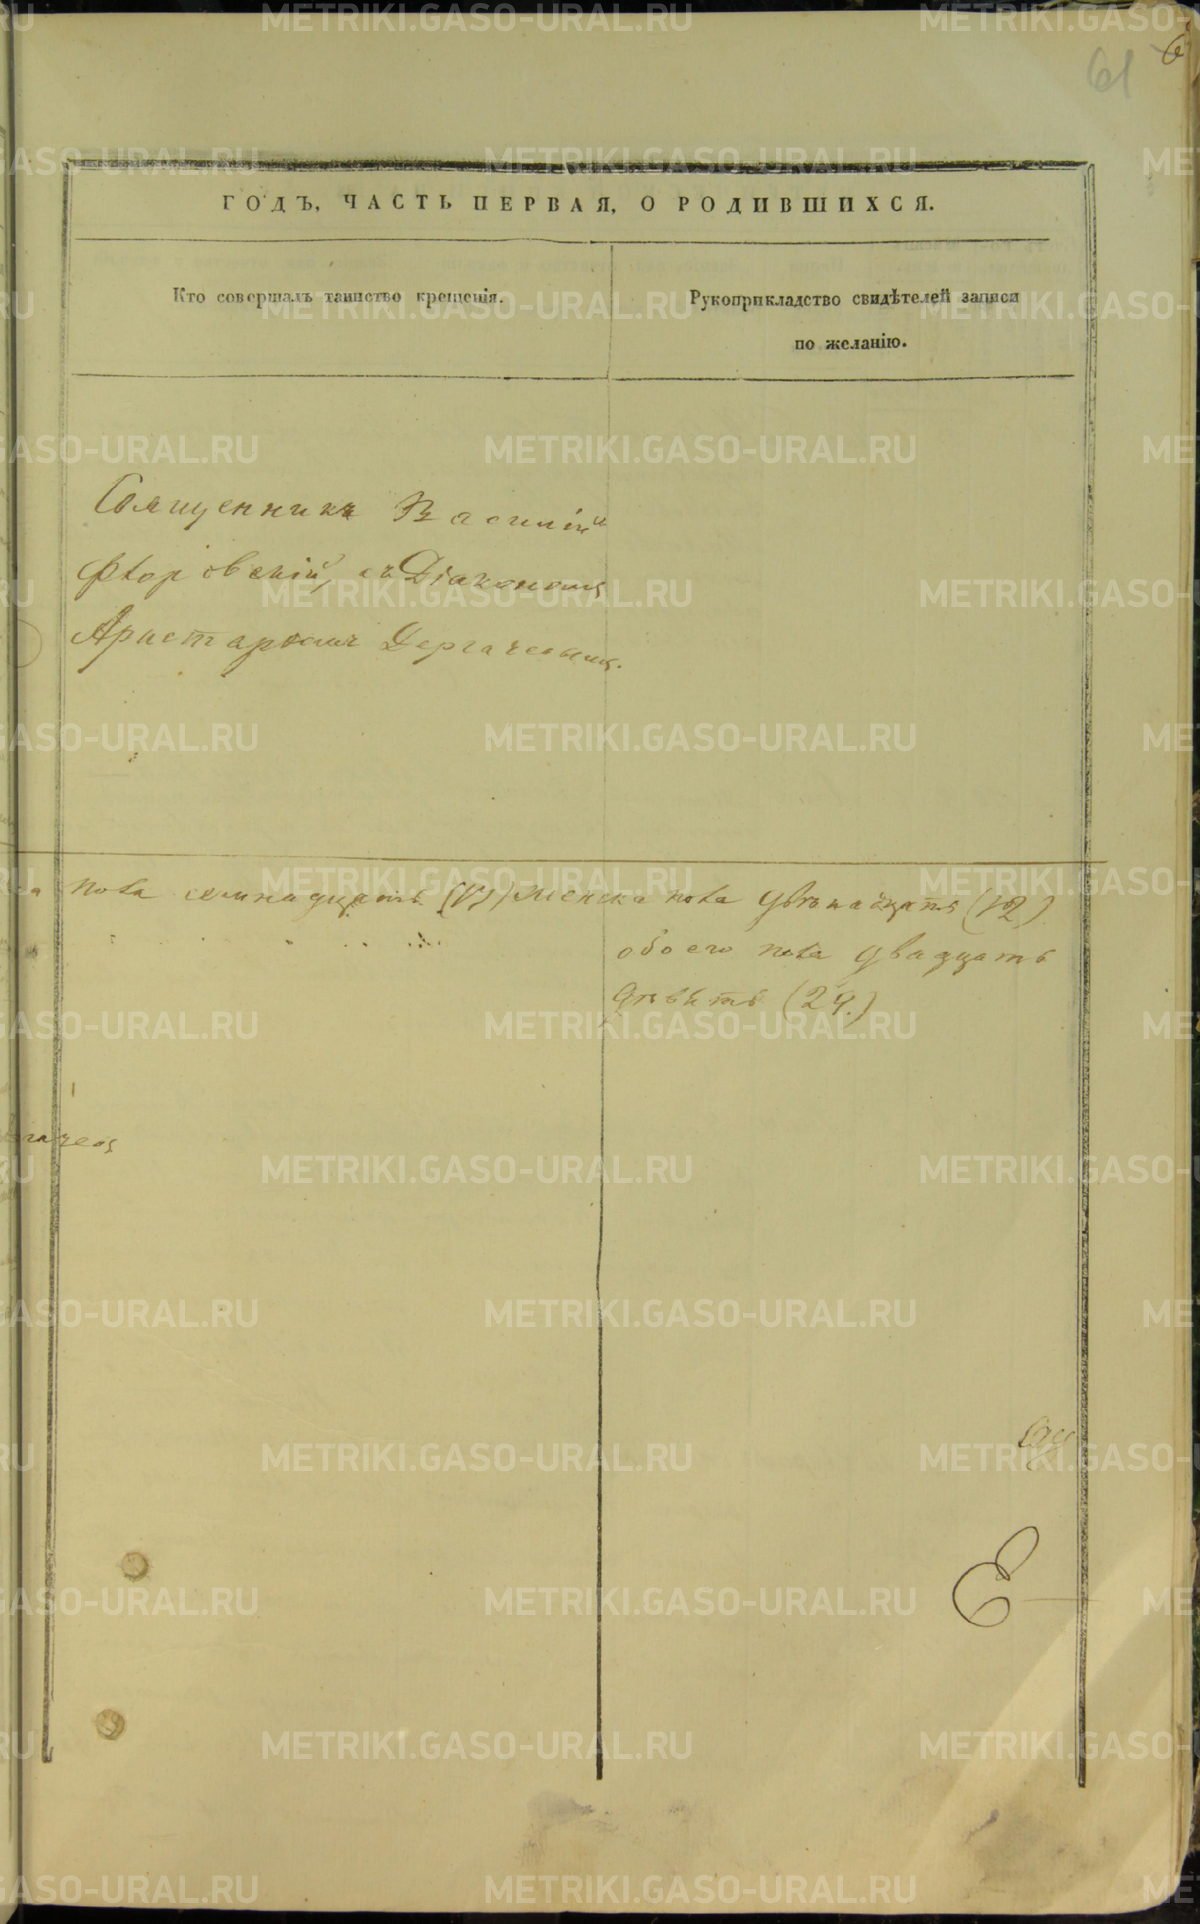 61
ГОДЪ, ЧАСТЬ ПЕРВАЯ, О РОДИВШИХСЯ.
Кто совершалъ таинство крещенія.
Рукоприкладство свидѣтелей записи
по желанію.
Священникъ Василій
Флоровскій, съ Діакономъ
Аристархомъ Дергачевымъ.
пола семнадцать (17) женска пола двѣнадцать (12)
обоего пола двадцать
девять (29.)
гачевъ
METRIKI.GASO-URAL.RU